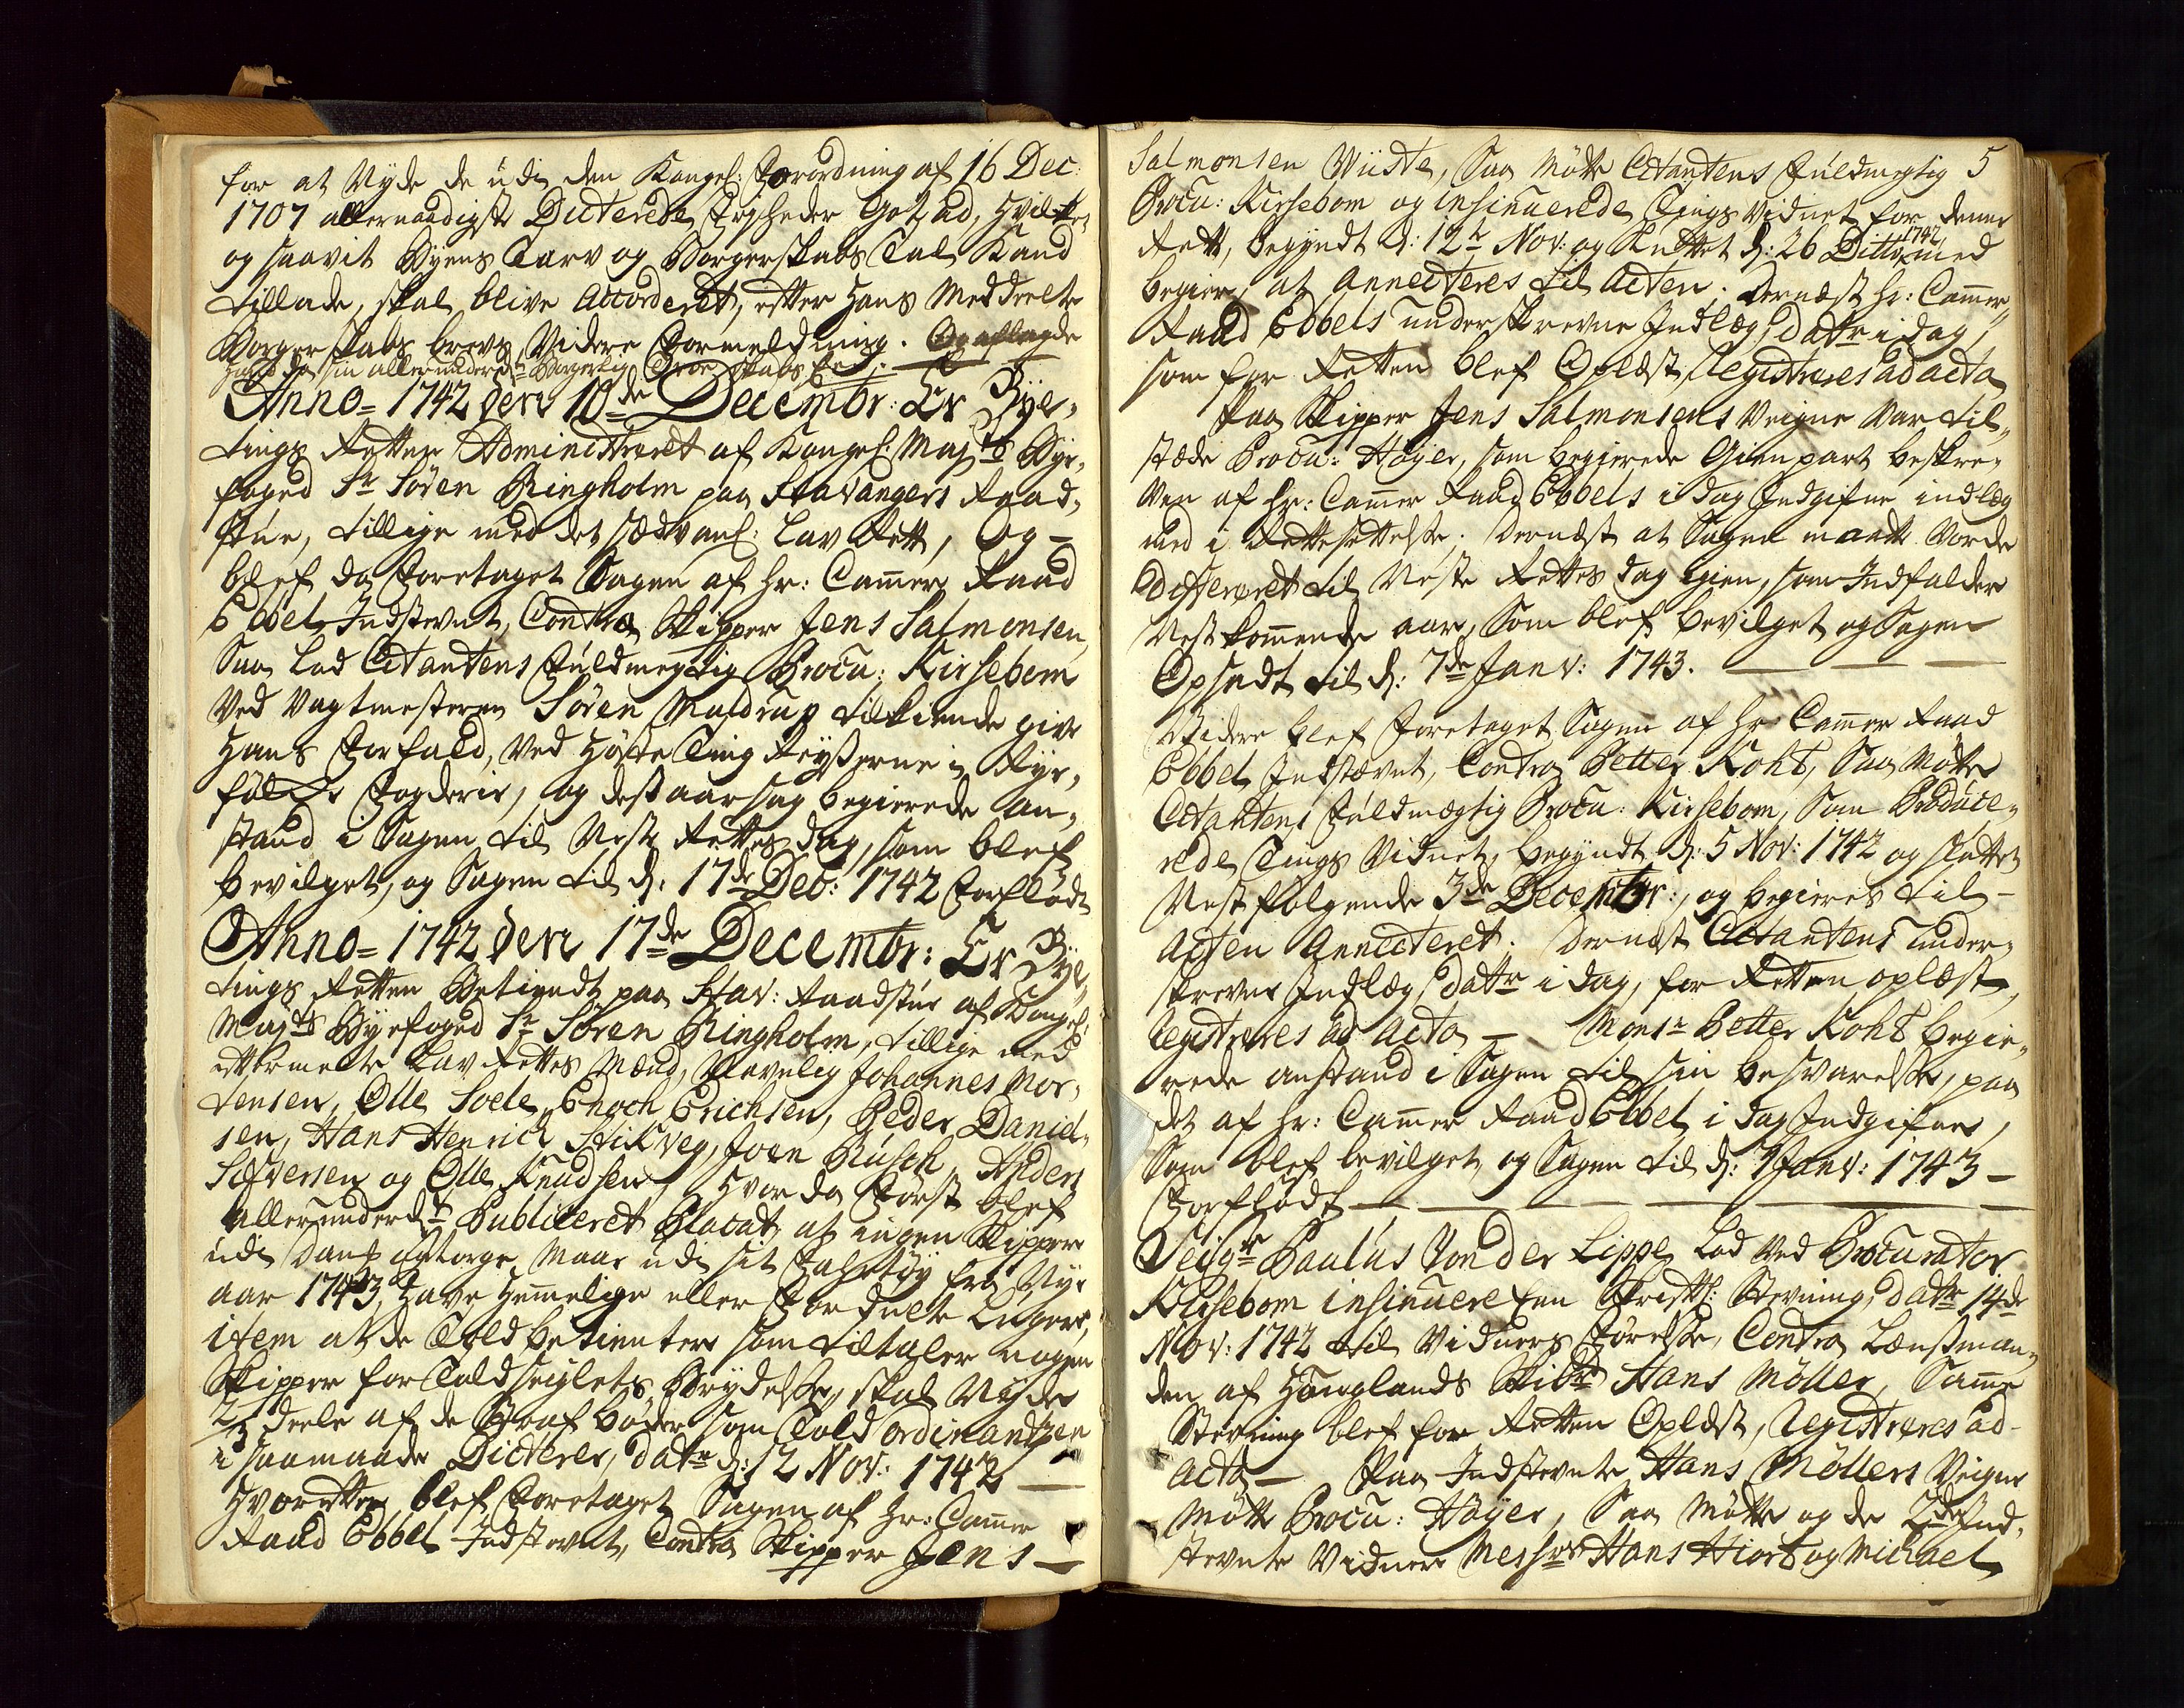 for at Nyde de udi den Kongel: Forordning af 16 Dec:
1707 allernaadigst Dicterede Friheder Got ad, hvilket
og saavit Byens Tarv og Borgerskabs Tal Kand
tillade, skal blive Accorderet, efter Hans Meddeelte
Borgerskabs brevs Videre Formeldning. Og aflagde
Hand da sin allerunderd: Borgerlig Troeskabs Eed.
Anno = 1742 den 10de Decembr: Er Bye-
tings Retten Administreret af Kongel: Majts Bye-
foged Sr Sören Ringholm paa Stavangers Raad-
stue, tillige med det sædvanl: Lav Rett, Og -
blef da Foretaget Sagen af Hr: Camer Raad
Ebbel Indstevnt, Contra Skipper Jens Salmonsen,
Saa Lod Citantens Fuldmegtig Procu: Kirsebom
Ved Vagtmesteren Sören Muldrup tilkiende give
Hans Forfald, Ved Höste Ting Reyserne i Ryе-
fölcke Fogderie, og desaarsag begierede an-
stand i Sagen til Nest Rettes dag, som blef
bevilget, og Sagen til d: 17de Dec: 1742 Forflödt
Anno = 1742 den 17de Decembr: Er Bye-
tings Retten Betiendt paa Stav: Raadstue af Kongel:
Majts Byefoged Sr Sören Ringholm, tillige med
eftermelte Lav Rettes Mænd, Navnlig Johannes Mor-
tensen, Olle Soele, Enoch Erichsen, Peder Daniel-
sen, Hans Henrich Stikveg, Joen Rusch, Anders
Sifversen og Olle Knudsen, Hvor da Först blef
allerunderdst Publiceret Placat at ingen Skipper
udi Danf og Norge Maae udi sit Fahrtöy fra Nye
aar 1743, Have Hemmelige eller Fordulte Lugers,
item at de Toldbetienter som tiltaler nogen
Skipper for Toldseiglets Brydelse, skal Nyde
2/3 deele af de Straf böder som Told ordinantzen
i saamaade Dicterer, datr d: 12 Nov: 1742 —
Hvorefter blef Foretaget Sagen af Hr: Camer
Raad Ebbel Indstevnt, Contra Skipper Jens —
5
Salmonsen Wiiste, Saa Mötte Citantens Fuldmegtig
Procu: Kirsebom og insinuerede Tings Vidnet for denne
Rett, begyndt d: 12te Nov: og sluttet d: 26 Ditto 1742 med
begier, at Annecteres til Acten. Dernæst Hr: Camer
Raad Ebbels underskrevne Indlæg datr i dag,
som for Retten blef Oplæst, Registreres ad acta
Paa Skipper Jens Salmonsens Veigne Var til-
stæde Procu: Höyer, som begierede Gienpart beskre-
ven af Hr: Camer Raad Ebbels i dag Indgifne indlæg
med i Rettesettelse. Dernæst at Sagen maatte Vorde
Differeret til Neste Rettes dag igien, som Indfalder
Nestkommende aar, Som blef bevilget og Sagen
Opsædt til d: 7de Janv: 1743.
Videre blef Foretaget Sagen af Hr Camer Raad
Ebbel Indstævnt, Contra Petter Koht, Saa Mötte
Citantens Fuldmægtig Procu: Kirsebom, Som Produce-
rede Tings Vidnet, begyndt d: 5 Nov: 1742 og sluttet
Nest fölgende 3de Decembr:, og begieres til —
Acten Annecteret. Dernæst Citantens under-
skrevne Indlæg datr i dag, for Retten oplæst,
Registreres ad Acta — Monsr Petter Koht begie-
rede anstand i Sagen til sin besvarelse, paa
det af Hr: Camer Raad Ebbel i dag Indgifne,
Som blef bevilget, og Sagen til d: 7 Janv: 1743 —
Forflödt
Seigr Paulus Von der Lippe Lod Ved Procurator
Kirsebom insinuere Een Skriftl: Stevning, datr 14de
Nov: 1742 til Vidners Förelse, Contra Lensman-
den af Hauglands Skibr Hans Möller, Samme
Stevning blef for Retten Oplæst, Registreres ad
acta — Paa Indstevnte Hans Möllers Veigne
Mötte Procu: Höyer, Saa Mötte og de 2de Ind-
stevnte Vidner Messrs Hans Hiort og Michael